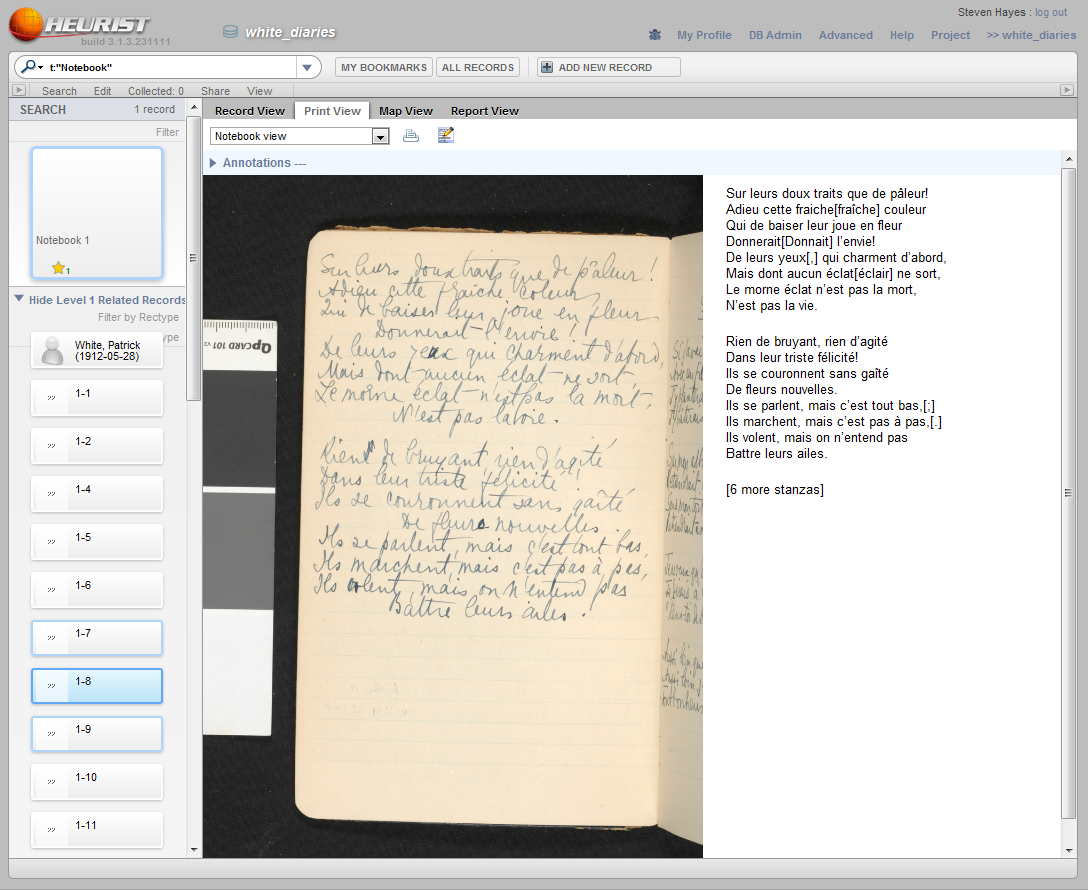 HEURIST
build 3.1.3.231111
white_diaries
Steven Hayes : log out
My Profile
DB Admin
Advanced
Help
Project
>> white_diaries
t:"Notebook"
MY BOOKMARKS
ALL RECORDS
ADD NEW RECORD
Search
Edit
Collected: 0
Share
View
SEARCH
1 record
Filter
Notebook 1
1
Hide Level 1 Related Records
Filter by Rectype
ype
White, Patrick
(1912-05-28)
1-1
1-2
1-4
1-5
1-6
1-7
1-8
1-9
1-10
1-11
Record View
Print View
Map View
Report View
Notebook view
Annotations ---
QPCARD 101 v3
Sur leurs doux traits que de pâleur!
Adieu cette fraiche couleur
Qui de baiser leur joue en fleur
Donnerait l'envie!
De leurs yeux qui charment d'abord,
Mais dont aucun éclat ne sort,
Le morne éclat n'est pas la mort,
N'est pas la vie.
Rien de bruyant, rien d'agité
Dans leur triste félicité!
Ils se couronnent sans gaîté
De fleurs nouvelles.
Ils se parlent, mais c'est tout bas,
Ils marchent, mais c'est pas à pas,
Ils volent, mais on n'entend pas
Battre leurs ailes.
Sur leurs doux traits que de pâleur!
Adieu cette fraiche[fraîche] couleur
Qui de baiser leur joue en fleur
Donnerait[Donnait] l’envie!
De leurs yeux[,] qui charment d’abord,
Mais dont aucun éclat[éclair] ne sort,
Le morne éclat n’est pas la mort,
N’est pas la vie.
Rien de bruyant, rien d’agité
Dans leur triste félicité!
Ils se couronnent sans gaîté
De fleurs nouvelles.
Ils se parlent, mais c’est tout bas,[;]
Ils marchent, mais c’est pas à pas,[.]
Ils volent, mais on n’entend pas
Battre leurs ailes.
[6 more stanzas]